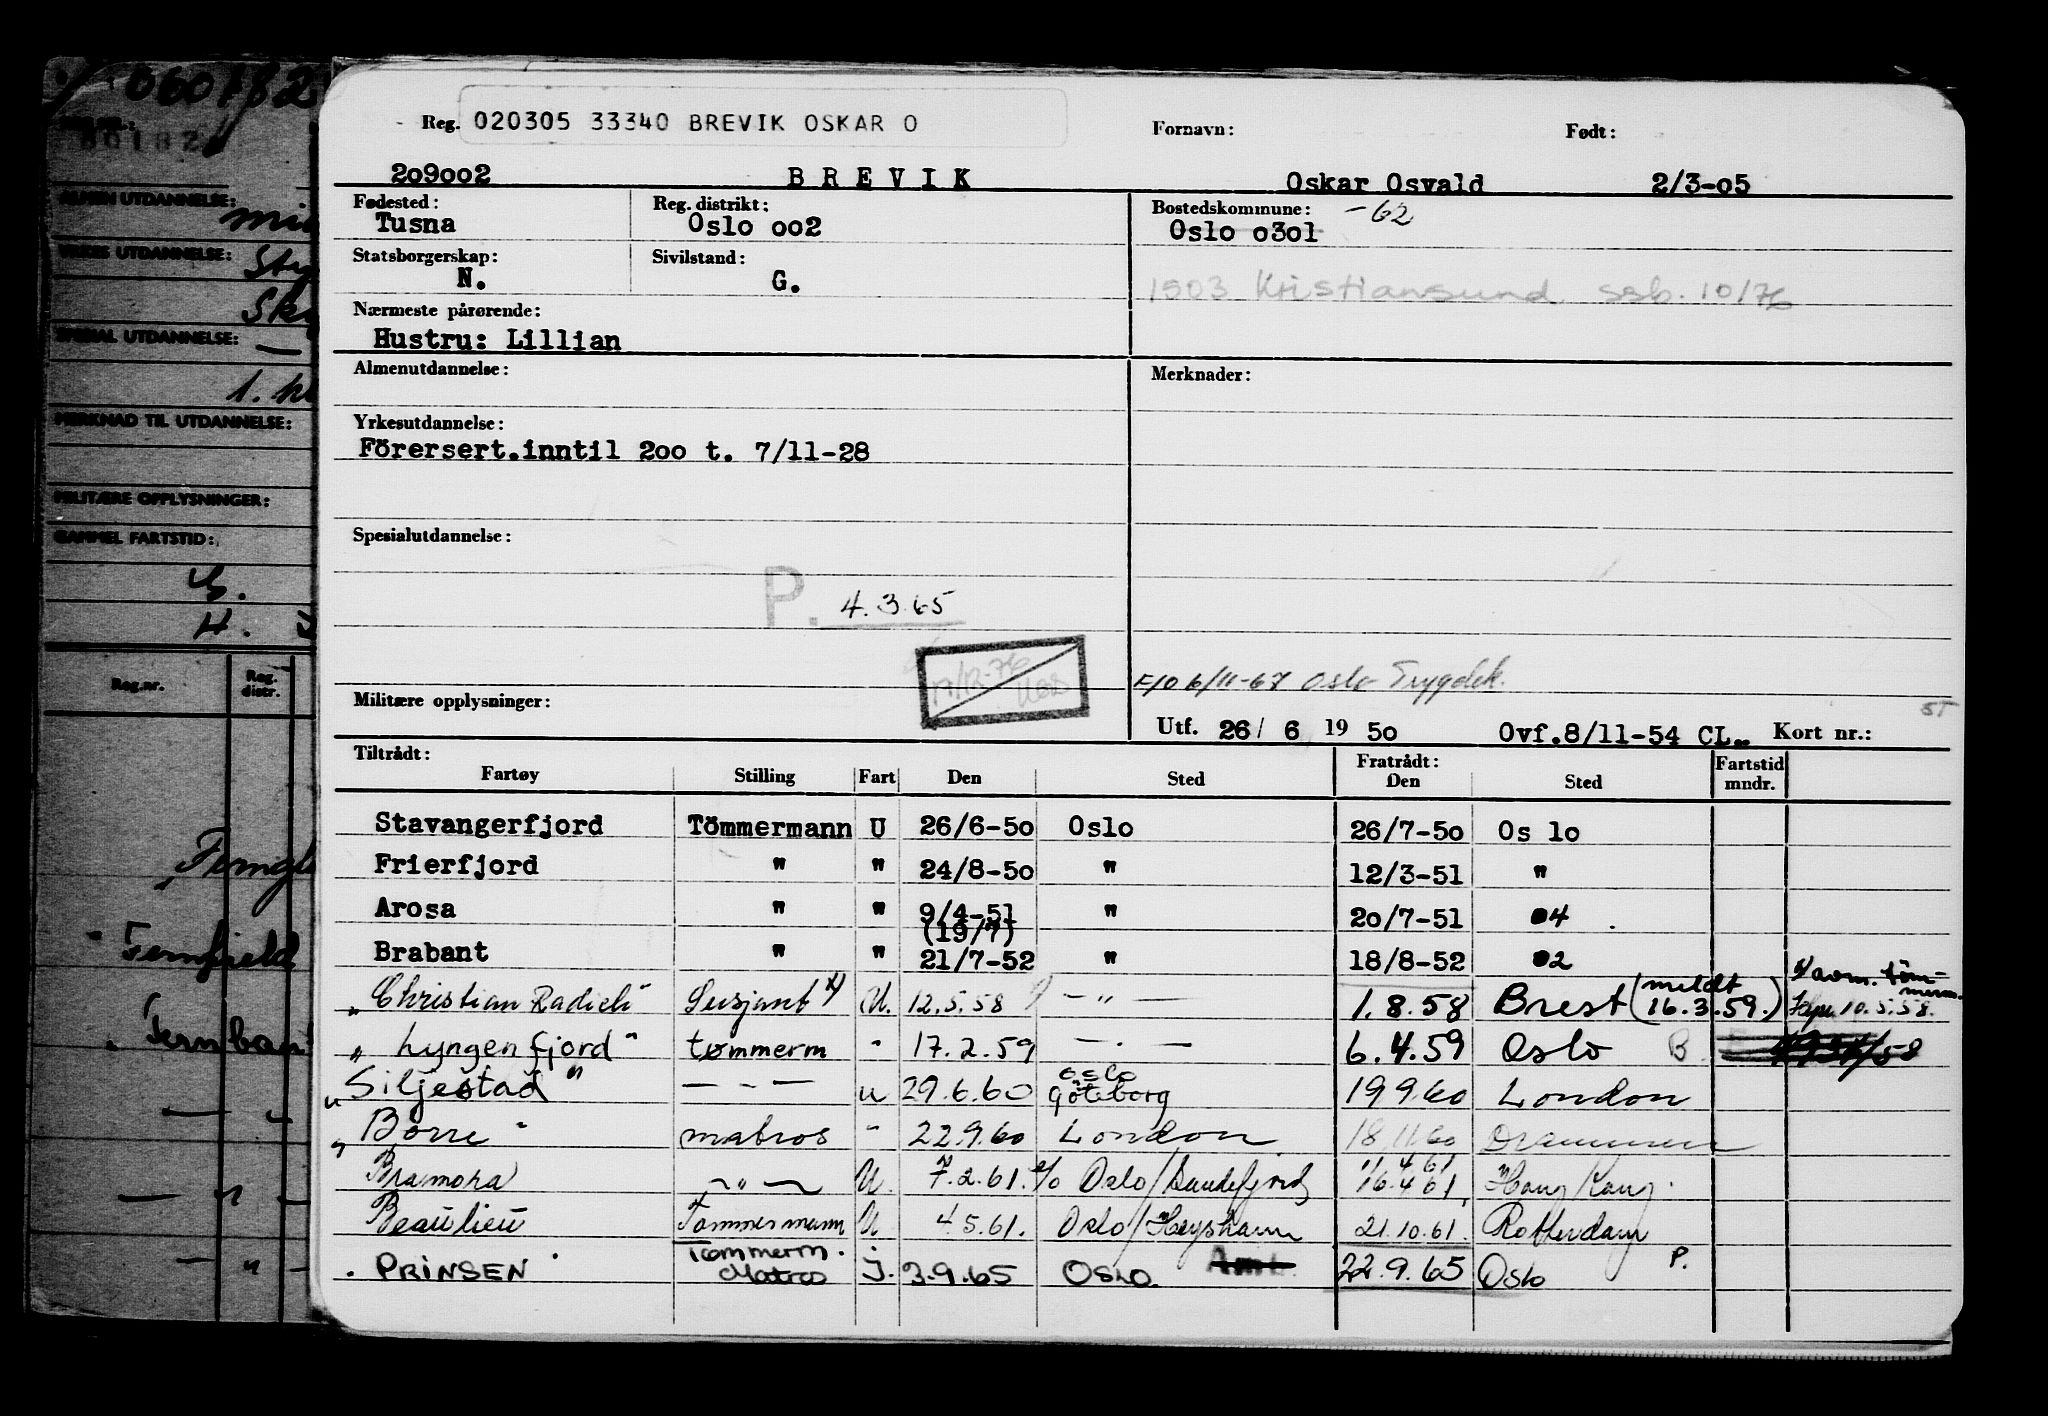 060782
Reg. 020305 33340 BREVIK OSKAR O Fornavn: Født:
209002 BREVIK Oskar Osvald 2/3-05
Fødested: Reg. distrikt: Bostedskommune: -62
Tusna Oslo 002 Oslo 0301
Statsborgerskap: Sivilstand:
N. G.
1503 Kristiansund ssb. 10/76
Nærmeste pårørende:
Hustru: Lillian
Almenutdannelse: Merknader:
Yrkesutdannelse:
Förersert.inntil 200 t. 7/11-28
Spesialutdannelse:
P. 4.3.65
F/O 6/11-67 Oslo Trygdek.
Militære opplysninger:
Utf. 26/ 6 19 50 Ovf.8/11-54 CL. Kort nr.: ST
Tiltrådt: Fratrådt: Fartstid
Fartøy Stilling Fart Den Sted Den Sted mndr.
Stavangerfjord Tömmermann U 26/6-50 Oslo 26/7-50 Os lo
Frierfjord " " 24/8-50 " 12/3-51 "
Arosa " " 9/4-51 " 20/7-51 04
(19/7)
Brabant " " 21/7-52 " 18/8-52 02
"Christian Radich" x) U. 12.5.58 - " - 1.8.58 Brest (meldt 16.3.59.) 10.5.58.
"Lyngenfjord" tømmerm " 17.2.59 - . - 6.4.59 Oslo B
"Siljestad" - - - u 29.6.60 Oslo Göteborg 19.9.60 London
"Borre" matros " 22.9.60 London 18.11.60 Drammen
Bramora - " - U. 7.2.61. Oslo/Sandefjord 11.4.61 16.4.61 Hong Kong.
Beaulieu Tømmermann U 4.5.61. Oslo/Heysham 21.10.61. Rotterdam
PRINSEN Tømmerm. Matros J. 3.9.65 OSLO. 22.9.65 Oslo P.
ALMEN UTDANNELSE:
YRKES UTDANNELSE:
SPESIAL UTDANNELSE: —
MERKNAD TIL UTDANNELSE:
MILITÆRE OPPLYSNINGER:
GAMMEL FARTSTID:
Reg.nr. Reg. distr.